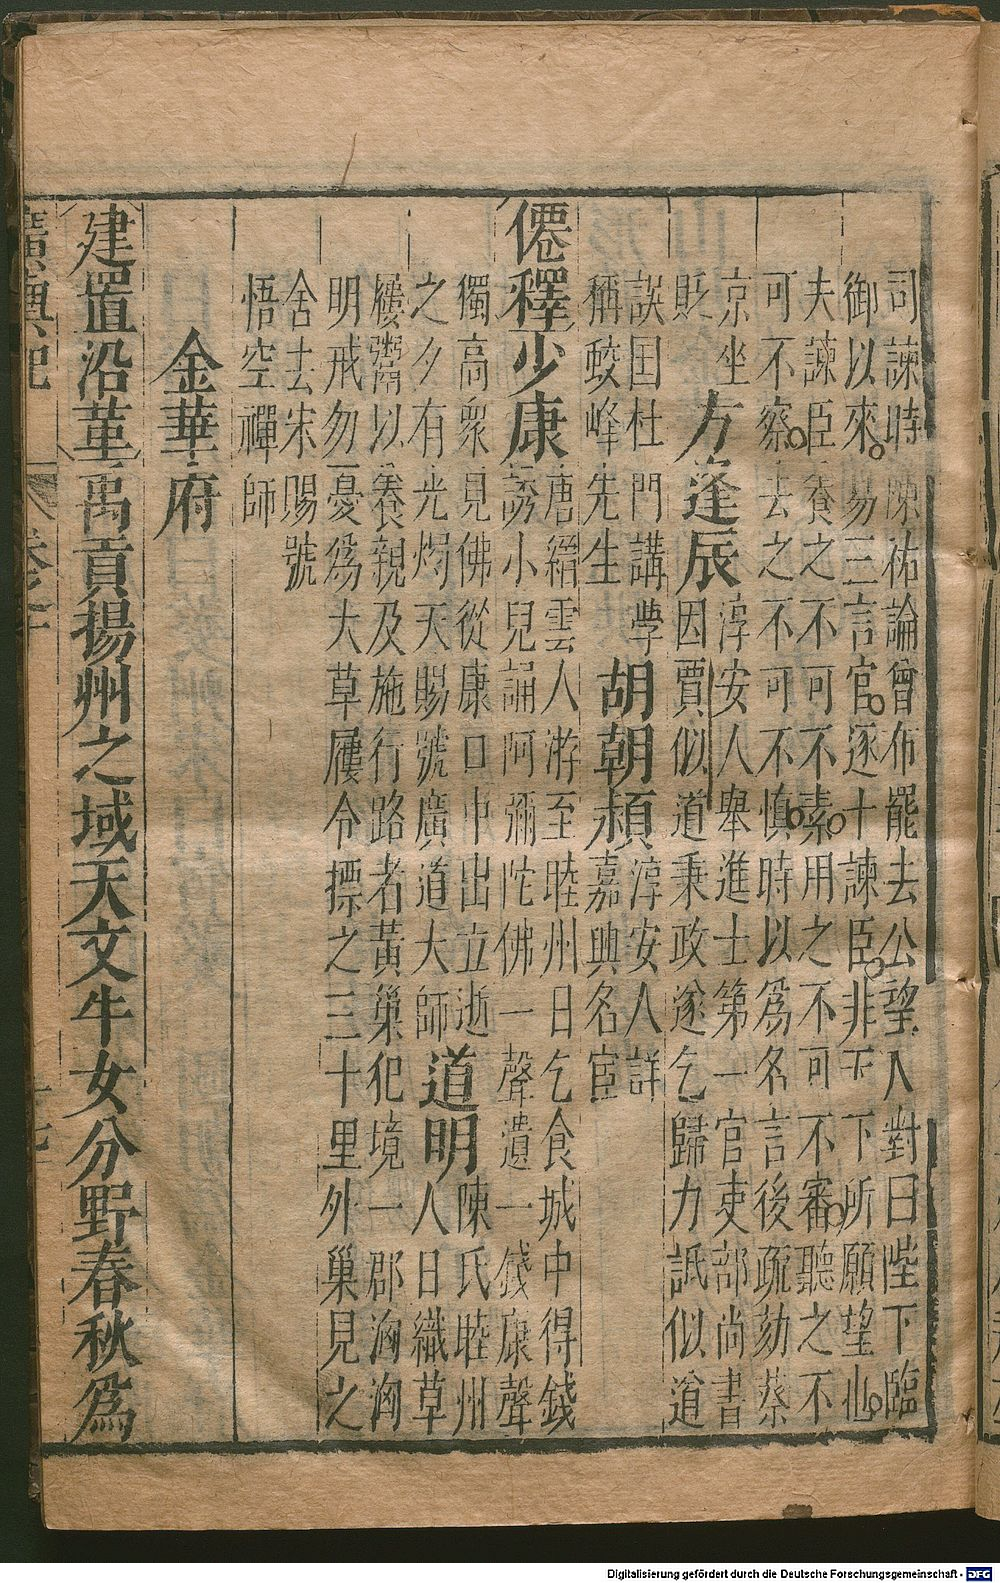 司諫時陳祐論曾布罷去公望入對曰陛下臨
御以來易三言官逐十諫臣非天下所願望也
夫諫臣養之不可不素用之不可不審聽之不
可不察去之不可不慎時以為名言後疏劾蔡
京坐
貶
方逢辰
淳安人舉進士第一官吏部尚書
因賈似道秉政遂乞歸力詆似道
誤国杜門講學
稱蛟峰先生
胡朝頴
淳安人詳
嘉興名宦
僊釋少康
唐縉雲人游至睦州日乞食城中得錢
誘小兒誦阿彌陀佛一聲遺一錢康聲
獨高衆見佛從康口中出立逝
之夕有光燭天賜號廣道大師
道明
陳氏睦州
人日織草
屨鬻以養親及施行路者黃巢犯境一郡洶洶
明戒勿憂為大草屨令摽之三十里外巢見之
舍去宋賜號
悟空禪師
金華府
建置沿革禹貢揚州之域天文牛女分野春秋為
廣輿記
卷之十
Digitalisierung gefördert durch die Deutsche Forschungsgemeinschaft - DFG